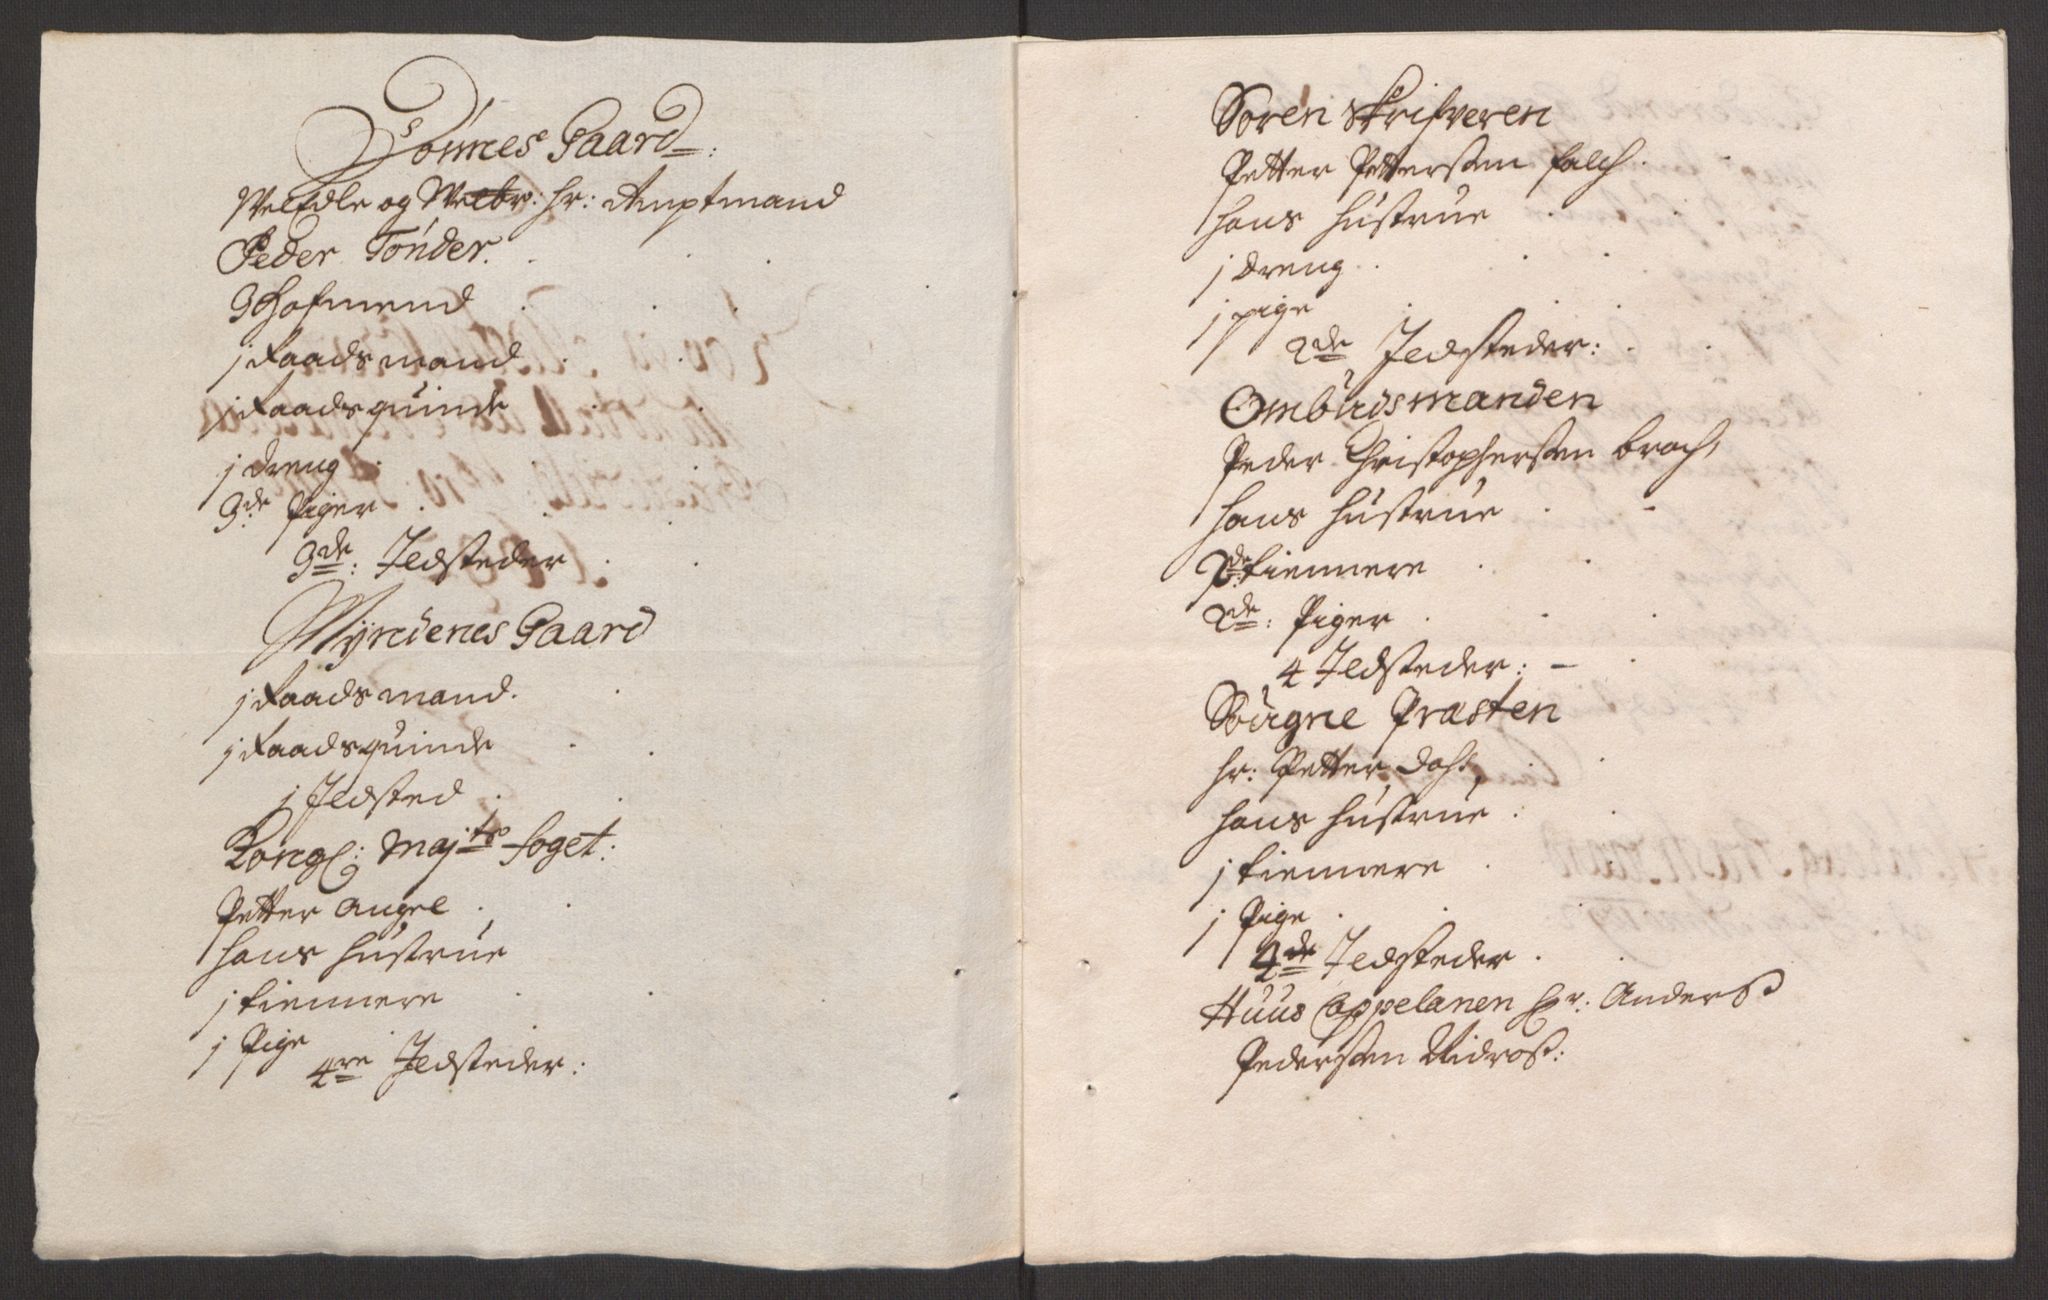 Dønnes Gaard:
WelEdle og Welbr: hr: Amptmand
Peder Tønder.
3 Hofmend
j Raadsmand
j Raadsquinde
j dreng
3de Piger
3de: Jldsteder
Mÿndenes Gaard
j Raadsmand.
j Raadsquinde
j Jldsted
Kongl: Majts foget:
Petter Angel
hans hústrúe
j tiennere
j Pige
4re Jldsteder:
Soren Skrifveren
Petter Pettersen falch.
hans hústrúe
j dreng
j pige
2de Jldsteder:
Ombúdsmanden
Peder Christophersen broch,
hans hústrúe
2de tiennere
2de: Piger
4 Jldsteder: -
Sougne Præsten
hr: Petter Dass,
hans hústrúe:
j tiennere
j Pige
4de Jldsteder
Huus Cappelanen Hr: Anders
Pedersen Nidros: